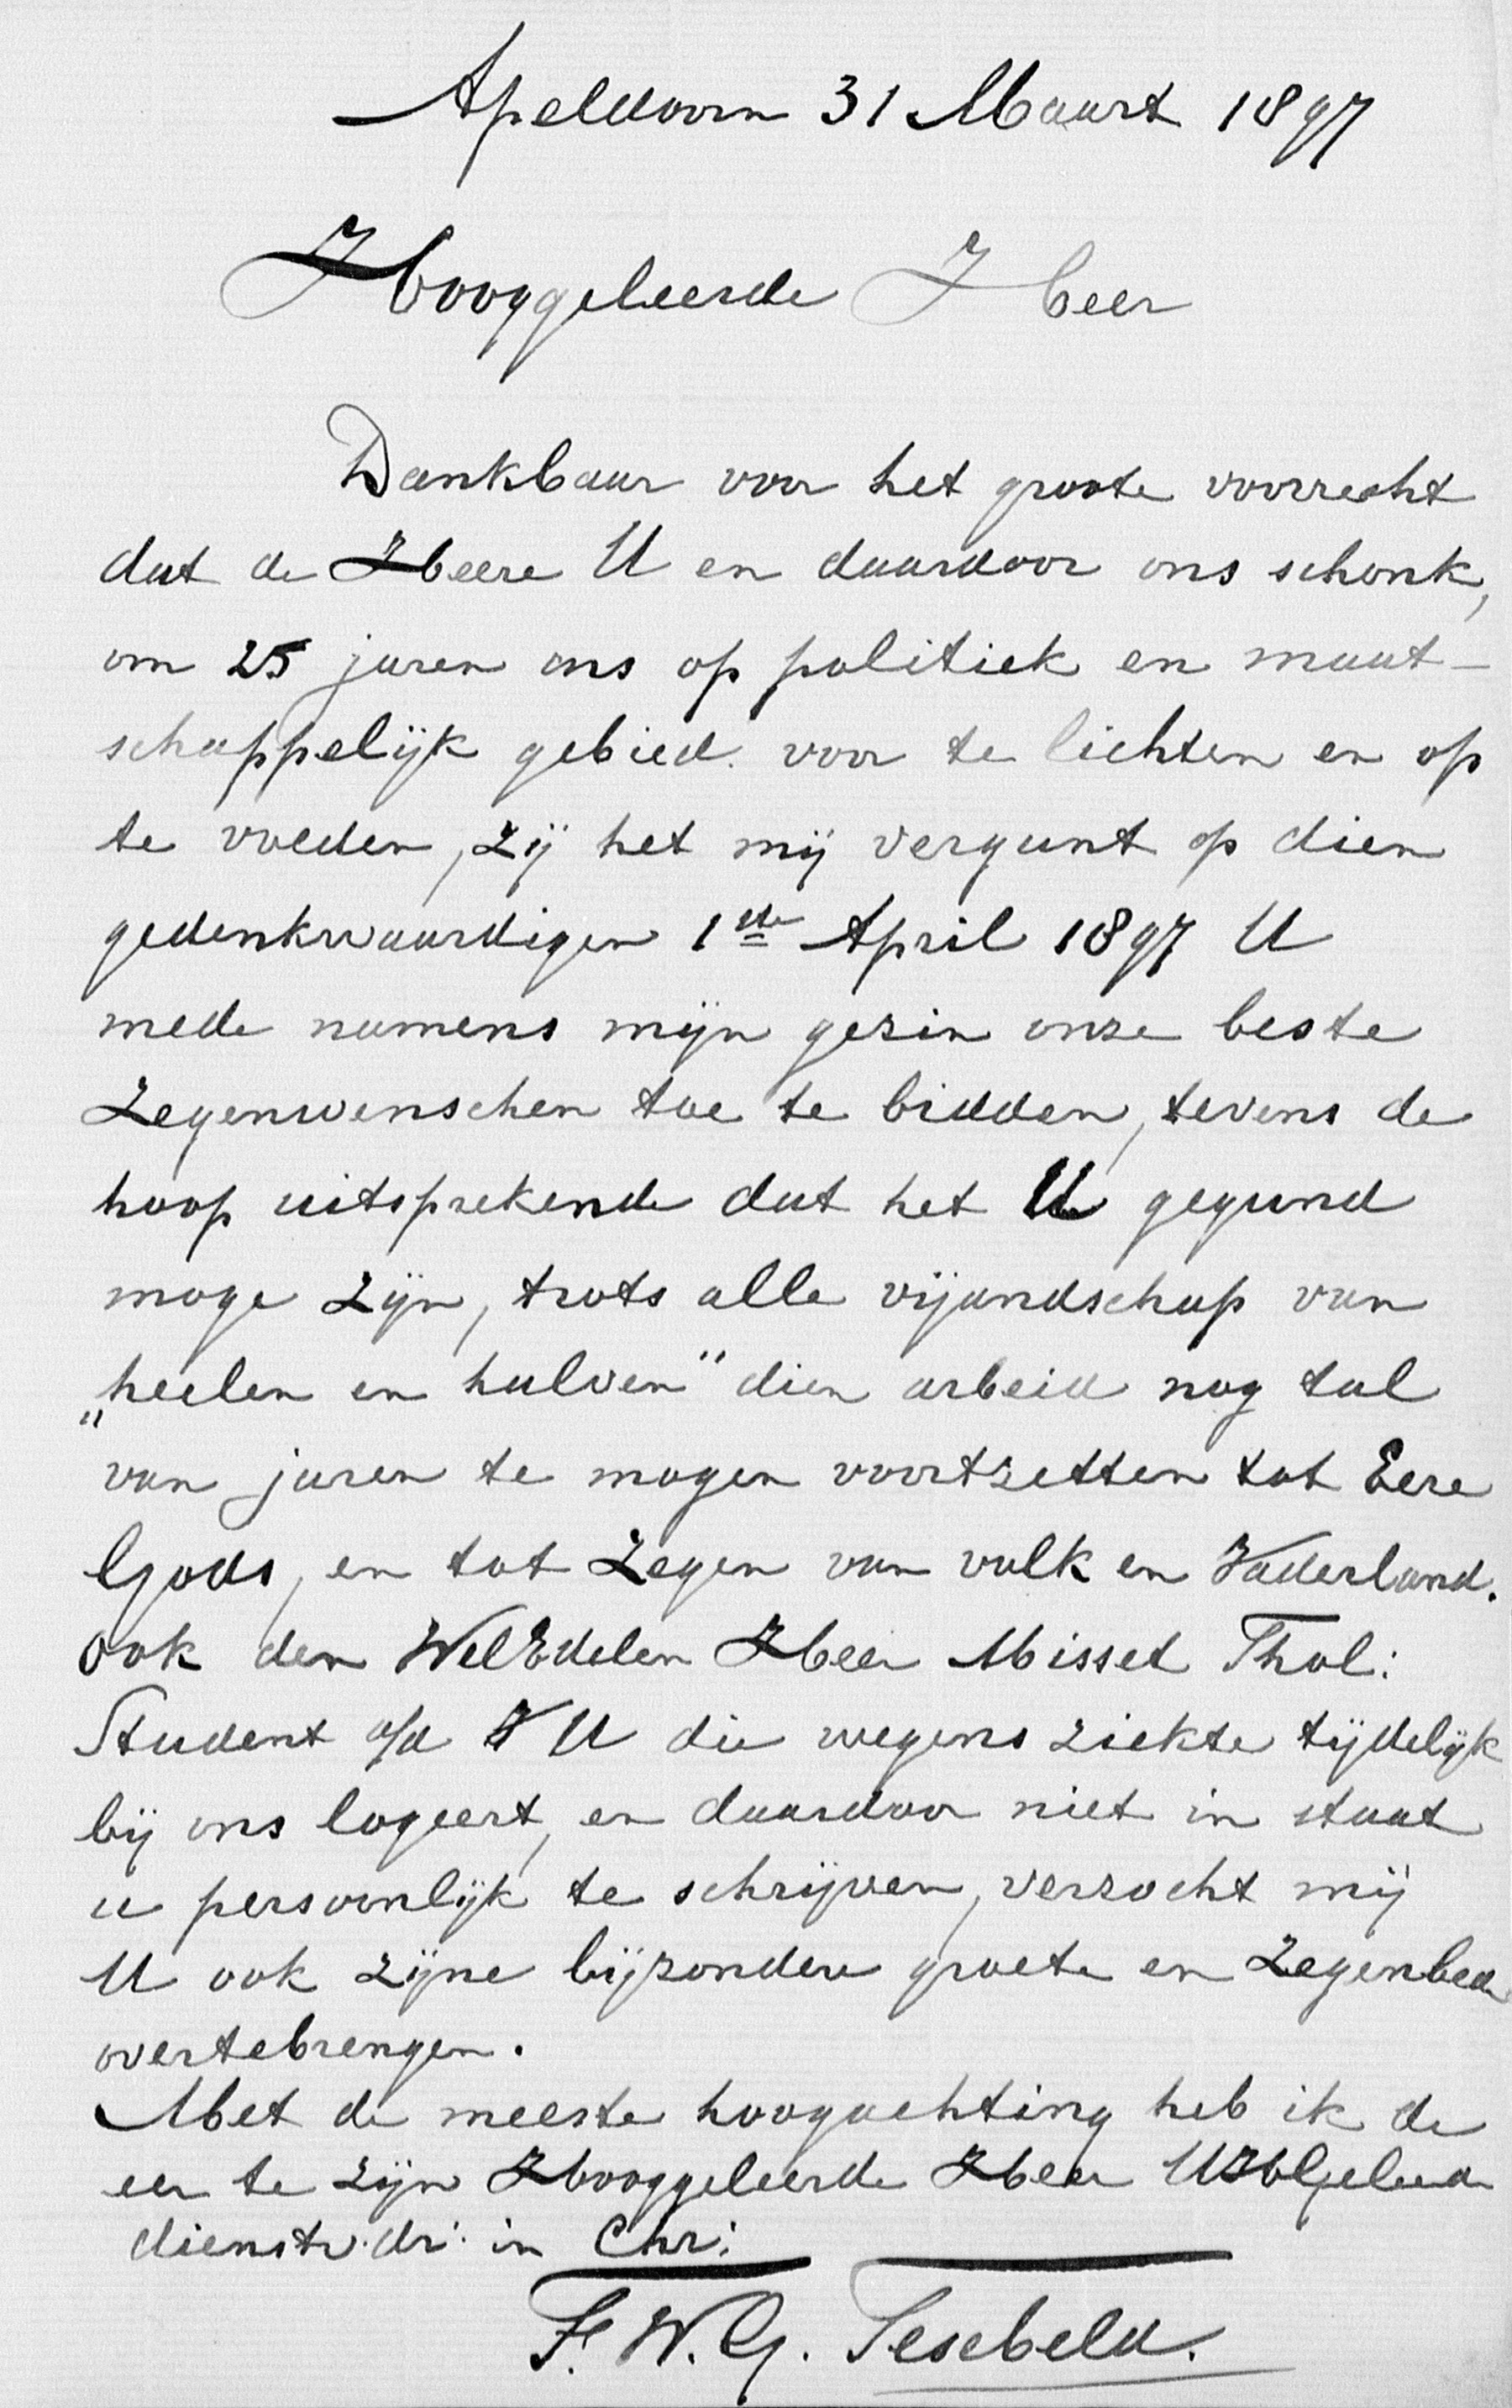 Apeldoorn 31 Maart 1897
Hooggeleerde Heer
Dankbaar voor het groote voorrecht
dat de Heere U en daardoor ons schonk,
om 25 jaren ons op politiek en maat-
schappelijk gebied voor te lichten en op
te voeden, zij het mij vergunt op dien
gedenkwaardigen 1ste April 1897 U
mede namens mijn gezin onze beste
Zegenwenschen toe te bidden, tevens de
hoop uitsprekende dat het U gegund
moge zijn, trots alle vijandschap van
„heelen en halven" dien arbeid nog tal
van jaren te mogen voortzetten tot Eere
Gods, en tot Zegen van volk en Vaderland.
Ook den WelEdelen Heer Misset Thol:
Student a/d VU die wegens ziekte tijdelijk
bij ons logeert, en daardoor niet in staat
u persoonlijk te schrijven, verzocht mij
U ook zijne bijzondere groete en Zegenbede
overtebrengen.
Met de meeste hoogachting heb ik de
eer te zijn Hooggeleerde Heer UHGeleerde
dienstw. dr: in Chr:
F. W. G. Tesebeld.